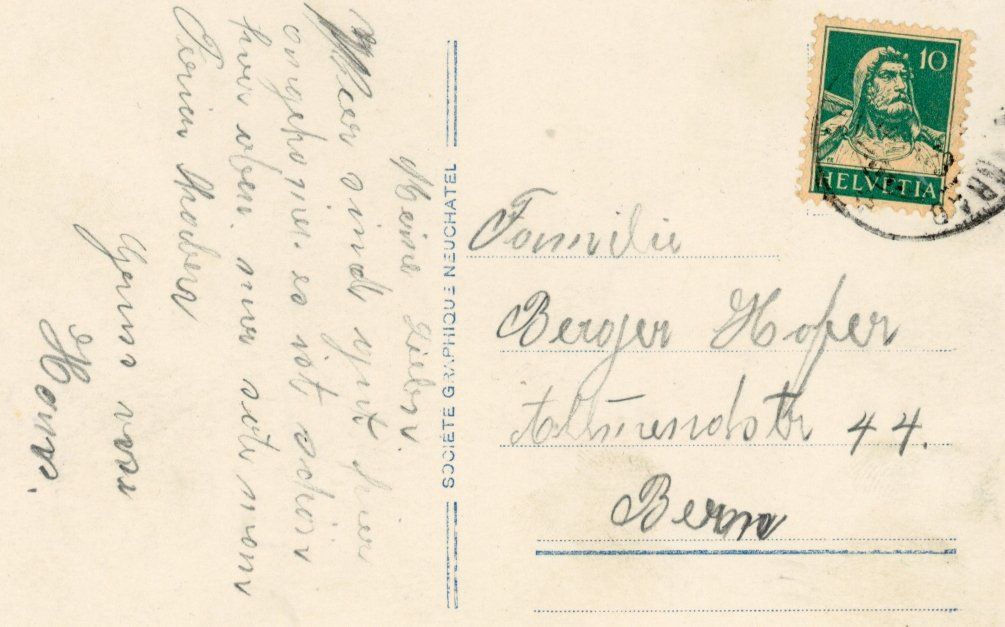 Meine Lieben
Meer sind gut hier
angekomen. es ist schön
hier oben. nur söte mann
Ferien haben
Gruss von
Hans.
SOCIÉTÉ GRAPHIQUE NEUCHATEL
10
HELVETIA
Familie
Berger Hofer
Allmendstr 44.
Bern